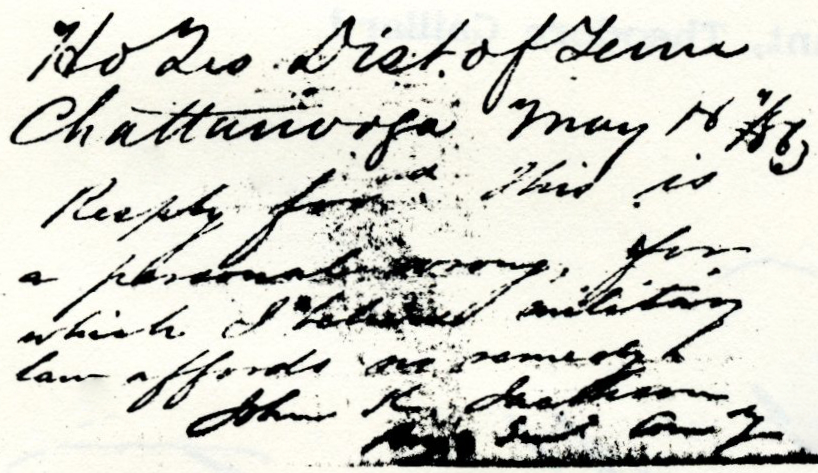 Hd Qrs Dist. of Tenn
Chattanooga May 18th /63
Resply ford This is
a personal wrong, for
which I believe military
law affords no remedy
John K. Jackson
Brig Genl Comdg